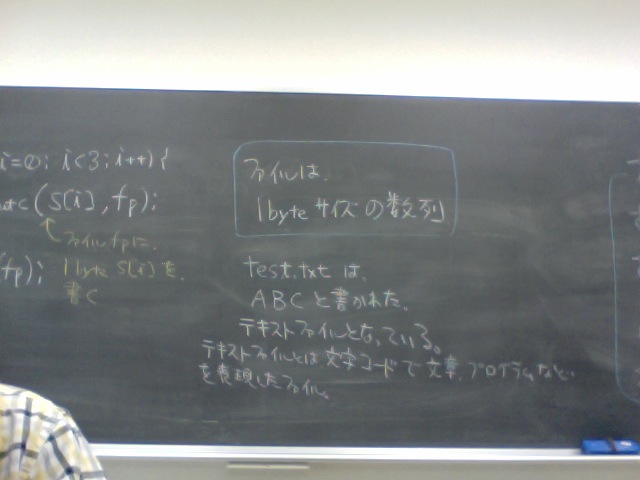 i=0; i<3; i++){
putc(S[i], fp);
ファイルfpに、
1byte S[i]を
書く
(fp);
ファイルは、
1byteサイズの数列
test.txt は、
ABCと書かれた。
テキストファイルとなっている。
テキストファイルとは文字コードで文章、プログラムなど
を表現したファイル。